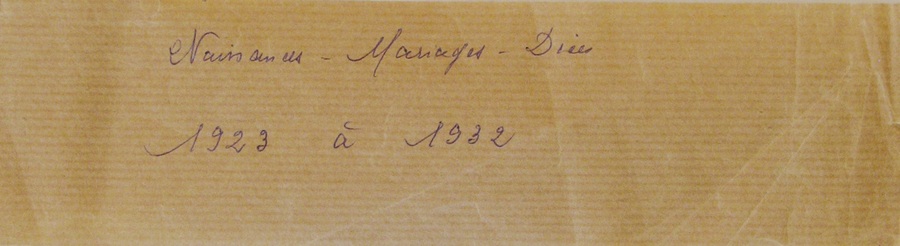 Naissances - Mariages - Décès
1923 à 1932